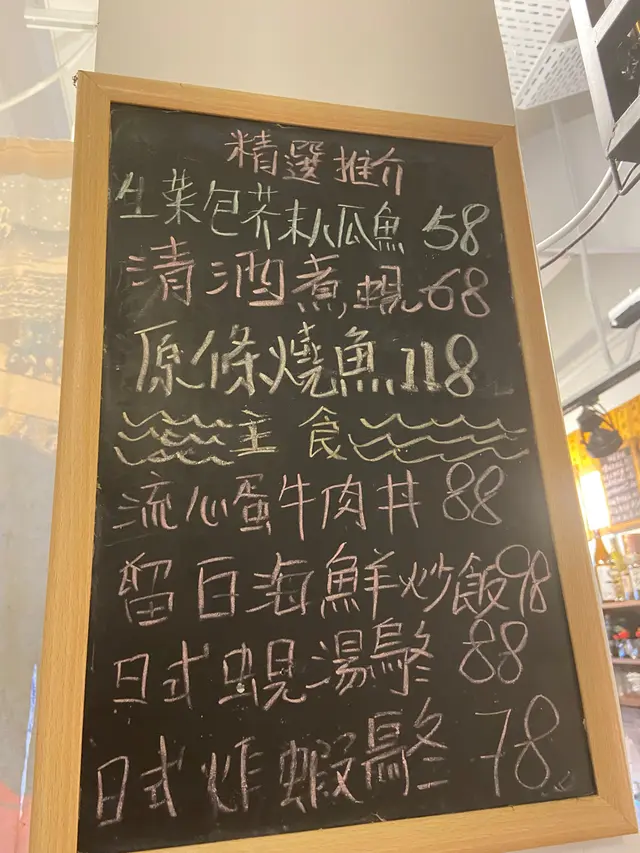 精選推介
生菜包芥末八瓜魚 58
清酒煮蜆 68
原條燒魚 118
主食
流心蛋牛肉丼 88
留白海鮮炒飯 98
日式蜆湯烏冬 88
日式炸蝦烏冬 78